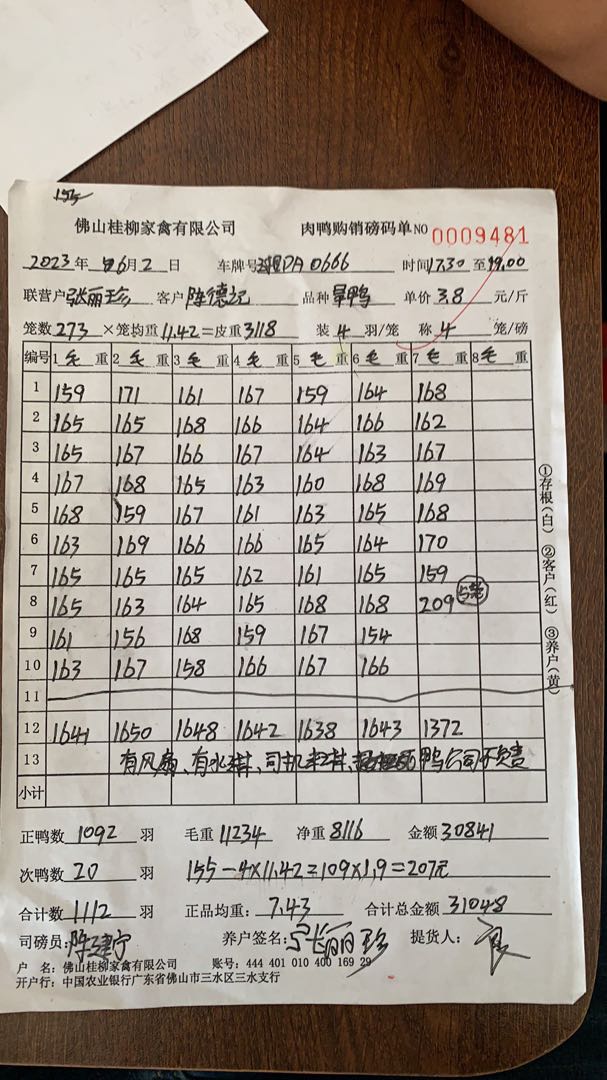 155
佛山桂柳家禽有限公司 肉鸭购销磅码单 NO 0009481
2023年 6月2日 车牌号 DA0666 时间17.30至19.00
联营户张丽珍 客户陈德记 品种旱鸭 单价3.8元/斤
笼数273×笼均重11.42=皮重3118 装4羽/笼 称4笼/磅
编号 1毛重 2毛重 3毛重 4毛重 5毛重 6毛重 7毛重 8毛重
1 159 171 161 167 159 164 168
2 165 165 168 166 164 166 162
3 165 167 166 167 164 163 167
4 167 168 165 163 160 168 169
5 168 159 167 161 163 165 168
6 163 169 166 166 165 164 170
7 165 165 165 162 161 165 159
8 165 163 164 165 168 168 209 5笼
9 161 156 168 159 167 154
10 163 167 158 166 167 166
11
12 1641 1650 1648 1642 1638 1643 1372
13 有风扇、有水淋、司机 鸭公司不负责
小计
①存根(白) ②客户(红) ③养户(黄)
正鸭数1092羽 毛重11234 净重8116 金额30841
次鸭数20羽 155-4×11.42=109×1.9=207元
合计数1112羽 正品均重:7.43 合计总金额31048
司磅员:陈建宁 养户签名:张丽珍 提货人:
户 名:佛山桂柳家禽有限公司 账号:444 401 010 400 169 29
开户行:中国农业银行广东省佛山市三水区三水支行